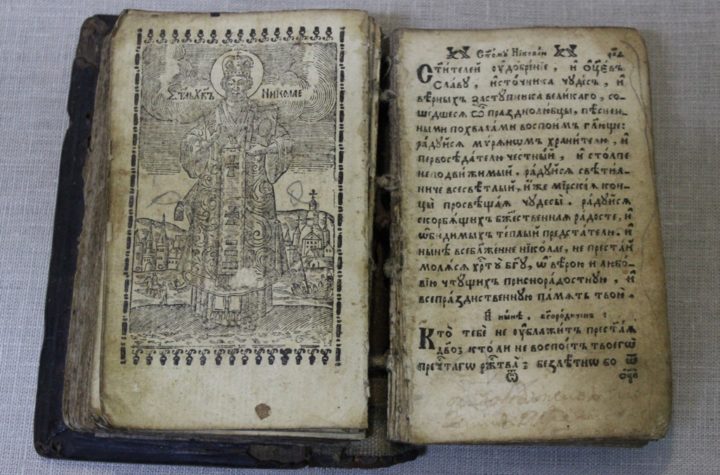 НИКОЛАЕ
Стому Николаи
Стителей оудобренїе, и ѻц҃евъ
славꙋ, источника чꙋдесъ, и
вѣрныхъ застꙋпника великаго, со-
шедшеся ѽ празднолюбцы, пѣсне-
ными похвалами воспоимъ гл҃юще:
радꙋйсѧ мѵрѧномъ хранителю, и
первосѣдателю честный, и столпе
неподвижимый, радꙋйсѧ свѣтил-
ниче всесвѣтлый, иже мїрскїѧ кон-
цы просвѣщаѧ чꙋдесы. радꙋйсѧ
скорбѧщихъ бж҃ественнаѧ радосте, и
ѡбидимыхъ теплый предстателю. и
нынѣ всеблаженне нїколае, не престай
молѧсѧ хрт҃ꙋ бг҃ꙋ, ѡ вѣрою и любо-
вїю чтꙋщихъ приснорадостнꙋю, и
всепразднственнꙋю память твою.
И нынѣ, бгородиченъ:
Кто тебе не оублажитъ престаѧ
дво; кто ли не воспоитъ твоегѡ
пречтагѡ ржтва; безлѣтнѡ бо